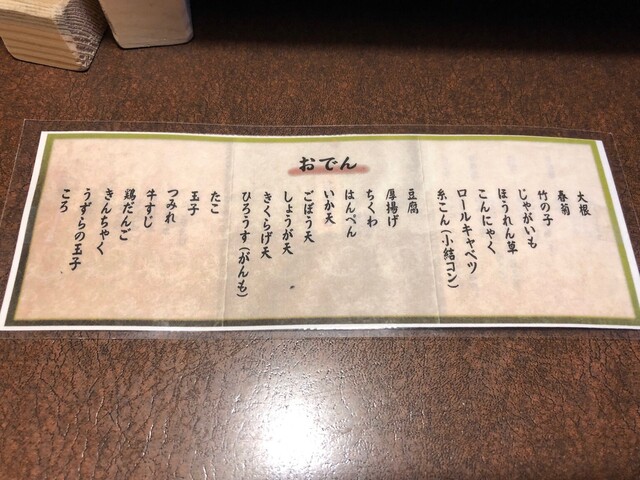 おでん
大根
春菊
竹の子
じゃがいも
ほうれん草
こんにゃく
ロールキャベツ
糸こん(小結コン)
豆腐
厚揚げ
ちくわ
はんぺん
いか天
ごぼう天
しょうが天
きくらげ天
ひろうす(がんも)
たこ
玉子
つみれ
牛すじ
鶏だんご
きんちゃく
うずらの玉子
ころ